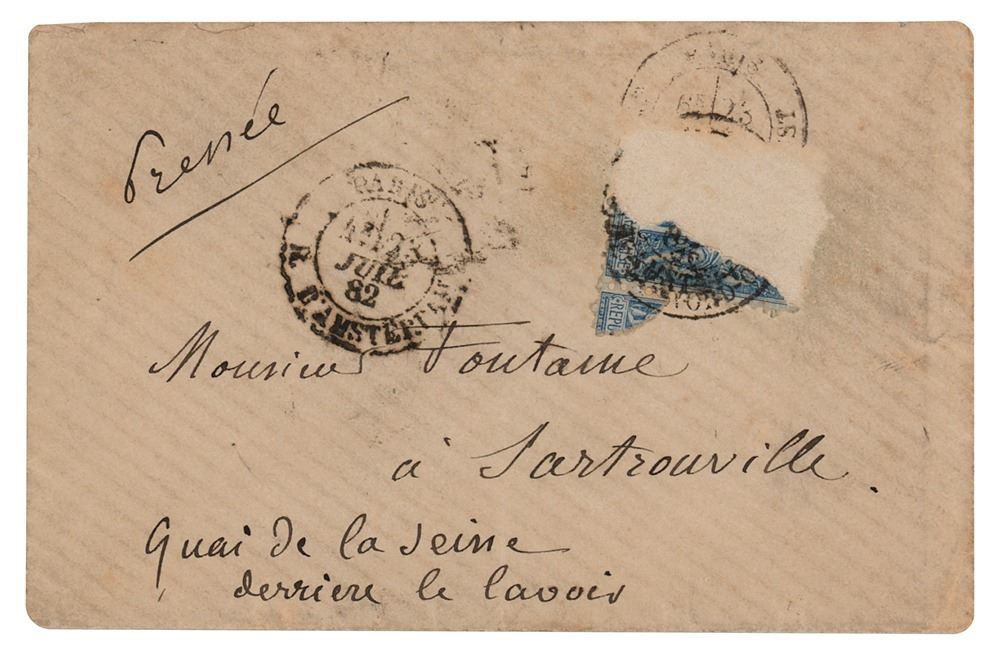 Pressée
PARIS
PARIS
23
JUIL
82
R. D'AMSTERDAM
REPU
Monsieur Fontaine
à Sartrouville.
Quai de la Seine
derriere le lavoir